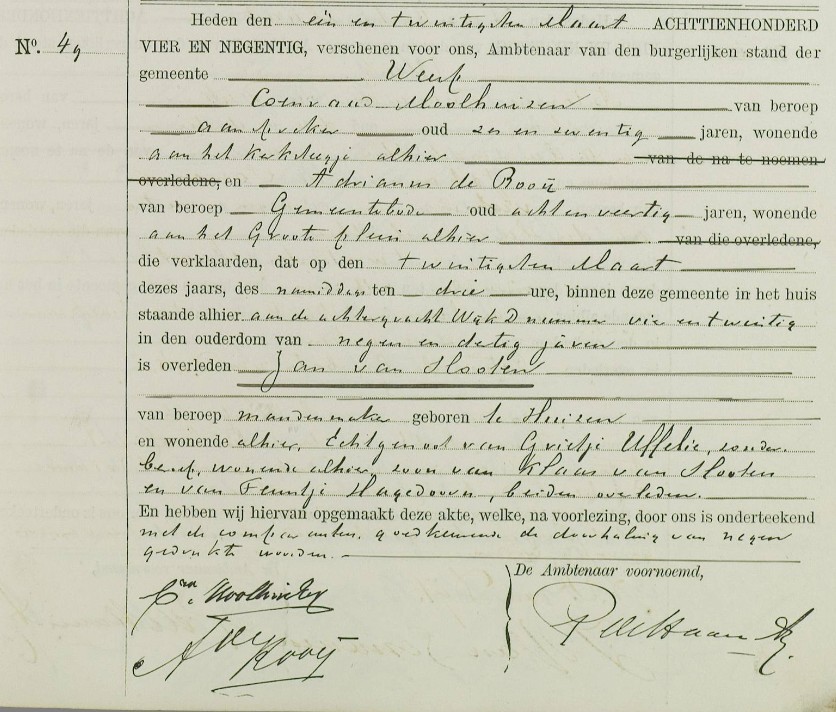 Heden den één en twintigsten Maart ACHTTIENHONDERD
No. 49
VIER EN NEGENTIG, verschenen voor ons, Ambtenaar van den burgerlijken stand der
gemeente Weesp
Coenraad Moolhuizen van beroep
aanspreker oud zes en zeventig jaren, wonende
aan het Kerksteegje alhier van de na te noemen
overledene, en Adrianus de Rooij
van beroep Gemeentebode oud acht en veertig jaren, wonende
aan het Groote plein alhier van die overledene,
die verklaarden, dat op den twintigsten Maart
dezes jaars, des namiddags ten drie ure, binnen deze gemeente in het huis
staande alhier aan de achtergracht Wijk D nummer vier en twintig
in den ouderdom van negen en dertig jaren
is overleden Jan van Slooten
van beroep mandenmaker geboren te Huizen
en wonende alhier, Echtgenoot van Grietje Uffelie, zonder
beroep, wonende alhier, zoon van Klaas van Slooten
en van Femmtje Hagedoorn, beiden overleden.
En hebben wij hiervan opgemaakt deze akte, welke, na voorlezing, door ons is onderteekend
met de comparanten, goedkeurende de doorhaling van negen
gedrukte woorden.
De Ambtenaar voornoemd,
Cn. Moolhuizen
A de Rooij
P de Haan